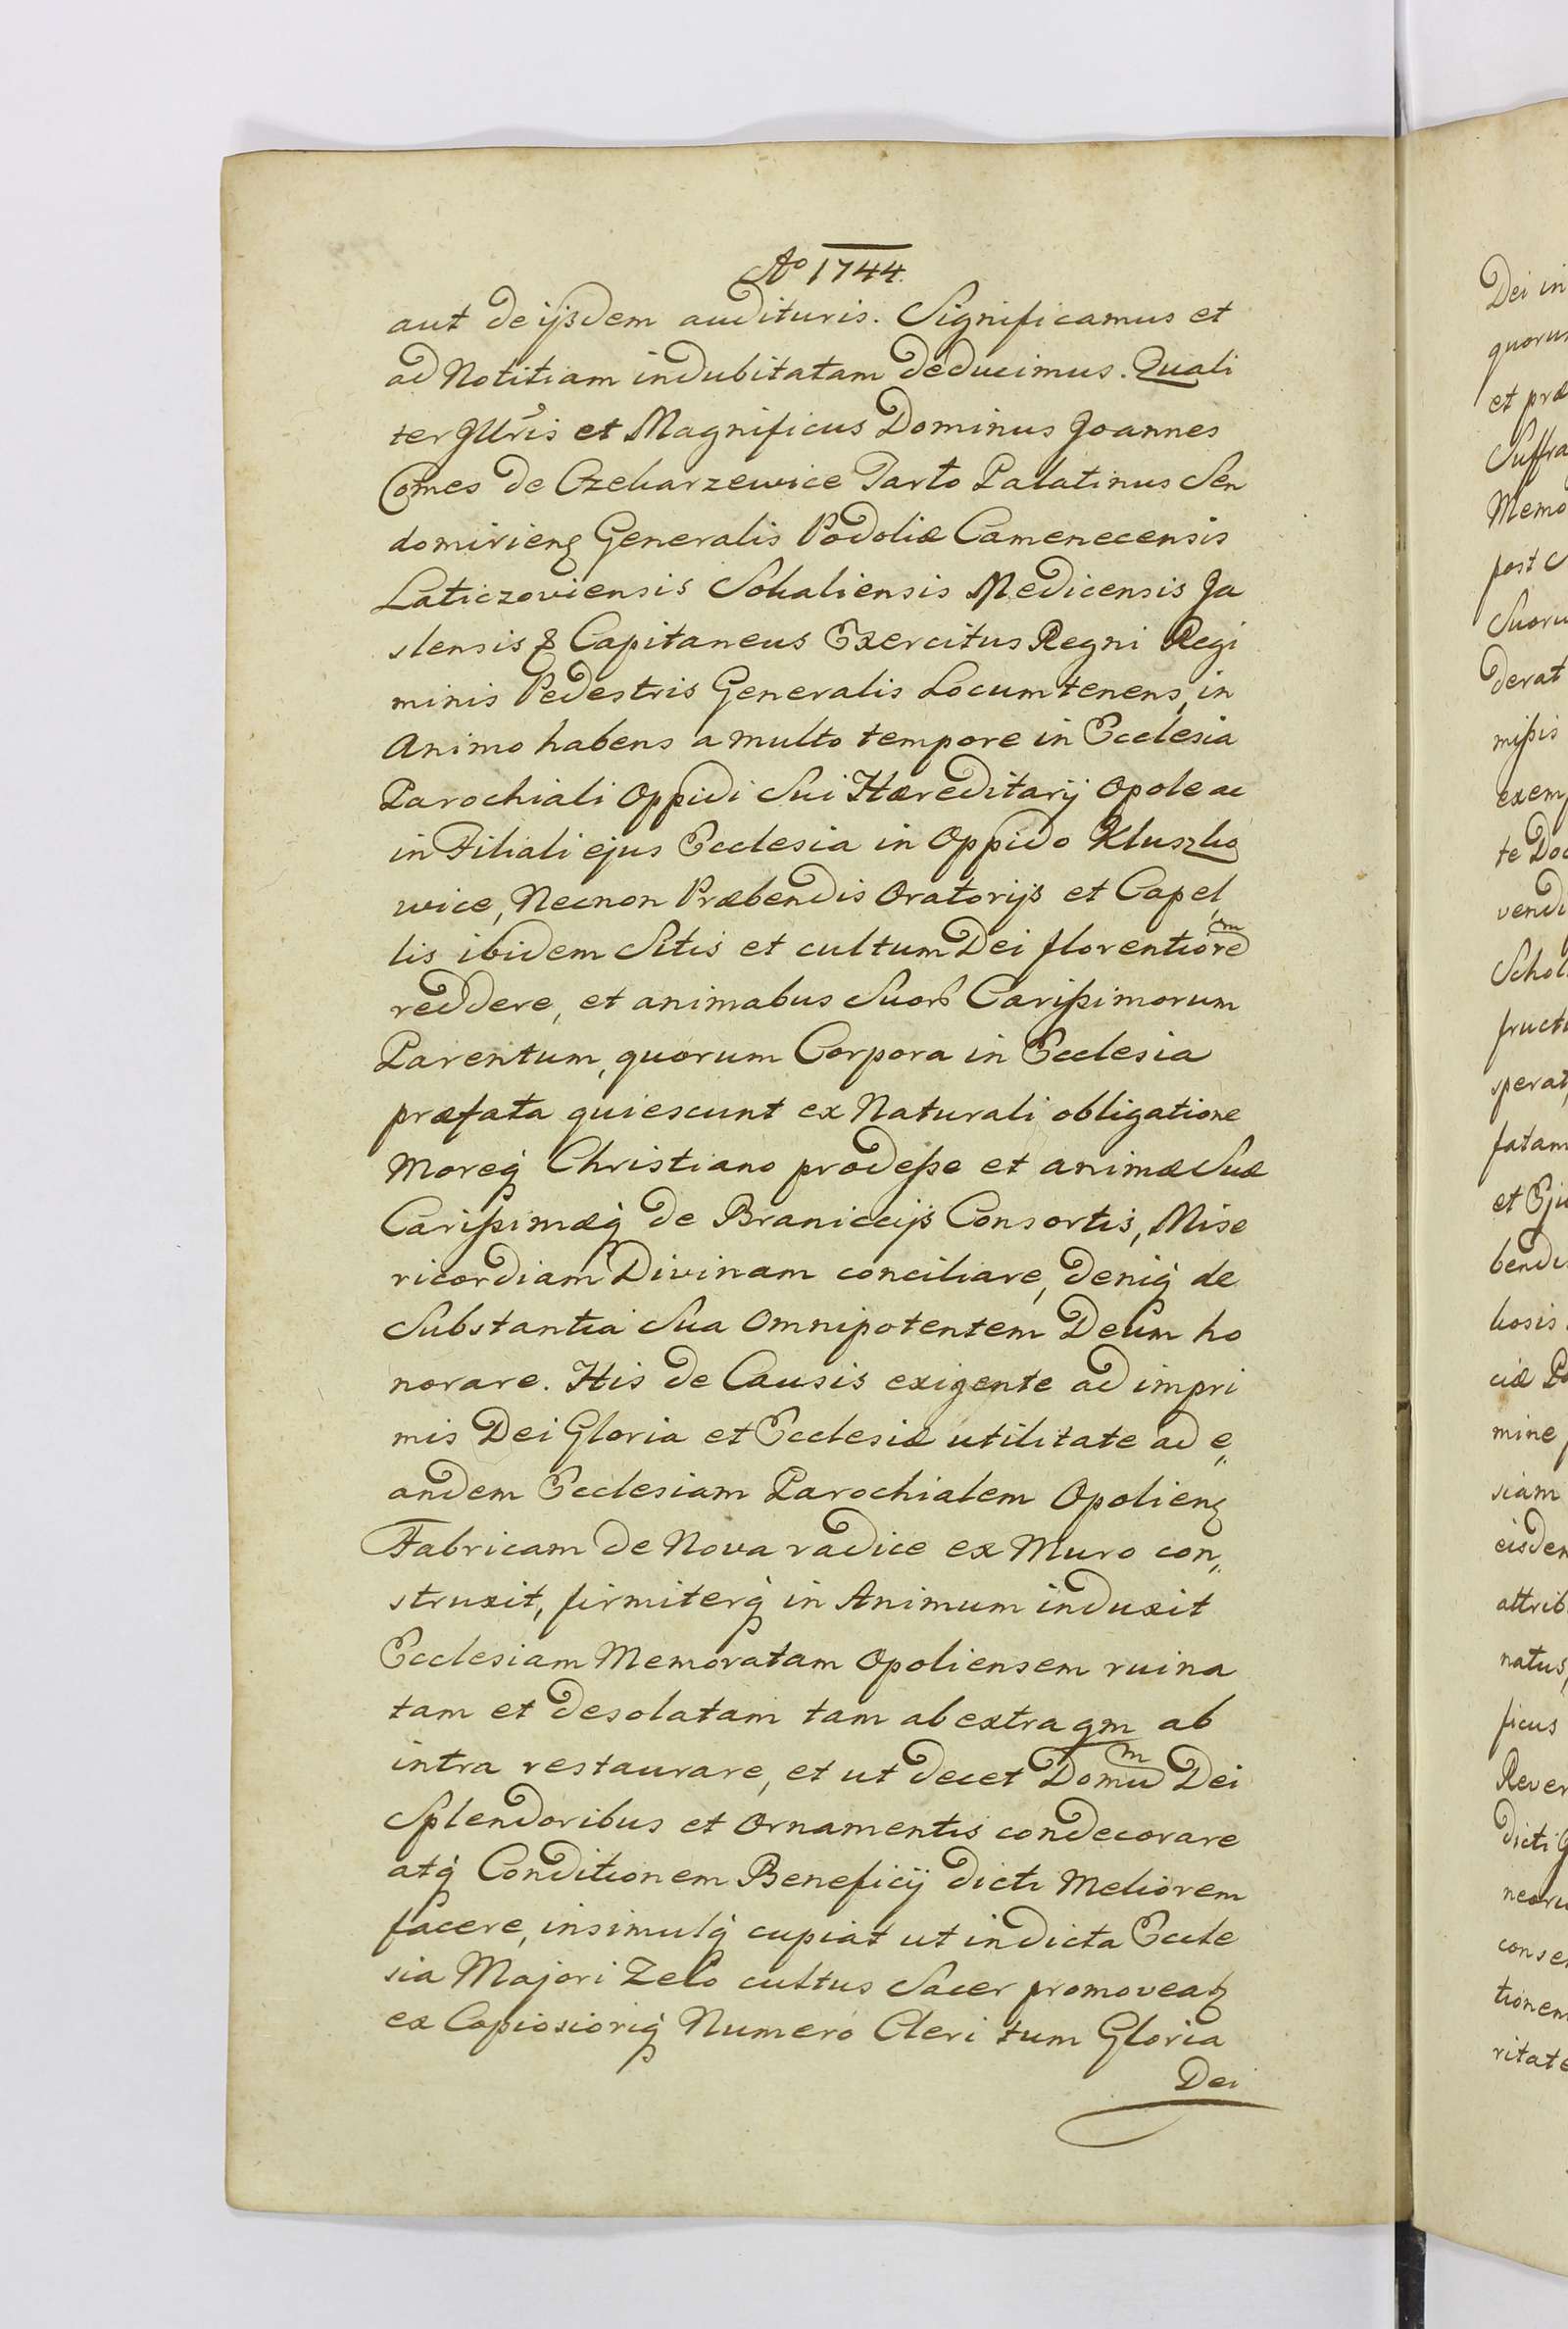 Aо 1744.
aut de ijsdem audituris. Significamus et
ad Notitiam indubitatam deducimus. Quali
ter Jllris et Magnificus Dominus Joannes
Comes de Czekarzewice Tarło Palatinus Sen
domirienꝫ Generalis Podoliæ Camenecensis
Laticzoviensis Sokaliensis Medicensis Ja
slensis & Capitaneus Exercitus Regni Regi
minis Pedestris Generalis Locumtenens, in
Animo habens a multo tempore in Ecclesia
Parochiali Oppidi Sui Hæreditarij Opole ac
in Filiali ejus Ecclesia in Oppido Kluszko
wice, Necnon Præbendis Oratorijs et Capel,
lis ibidem Sitis et cultum Dei florentiorem
reddere, et animabus Suorꝫ Carißimorum
Parentum, quorum Corpora in Ecclesia
præfata quiescunt ex Naturali obligatione
Moreq́ Christiano prodeße et animæ Suæ
Carißimæq́ de Branickijs Consortis, Mise
ricordiam Divinam conciliare, deniq́ de
Substantia Sua Omnipotentem Deum ho
norare. His de Causis exigente ad impri
mis Dei Gloria et Ecclesiæ utilitate ad e„
andem Ecclesiam Parochialem Opolienꝫ
Fabricam de Nova radice ex Muro con„
struxit, firmiterq́ in Animum induxit
Ecclesiam Memoratam Opoliensem ruina
tam et desolatam tam ab extra qm ab
intra restaurare, et ut decet Domum Dei
Splendoribus et Ornamentis condecorare
atq́ Conditionem Beneficij dicti Meliorem
facere, insimulq́ cupiat ut in dicta Eccle
sia Majori Zelo cultus Sacer promoveatꝫ
ex Copiosioriq́ Numero Cleri tum Gloria
Dei
Dei in
et præ
Suffra
Memo
post
Suoru
derat
mißis
exem
te Do
vendi
Schol
fructu
sperat
fatam
et Eju
bendi
ciæ
mine
siam
eisdem
attrib
natus,
ficus
Rever
dicti
conse
tionem
ritate